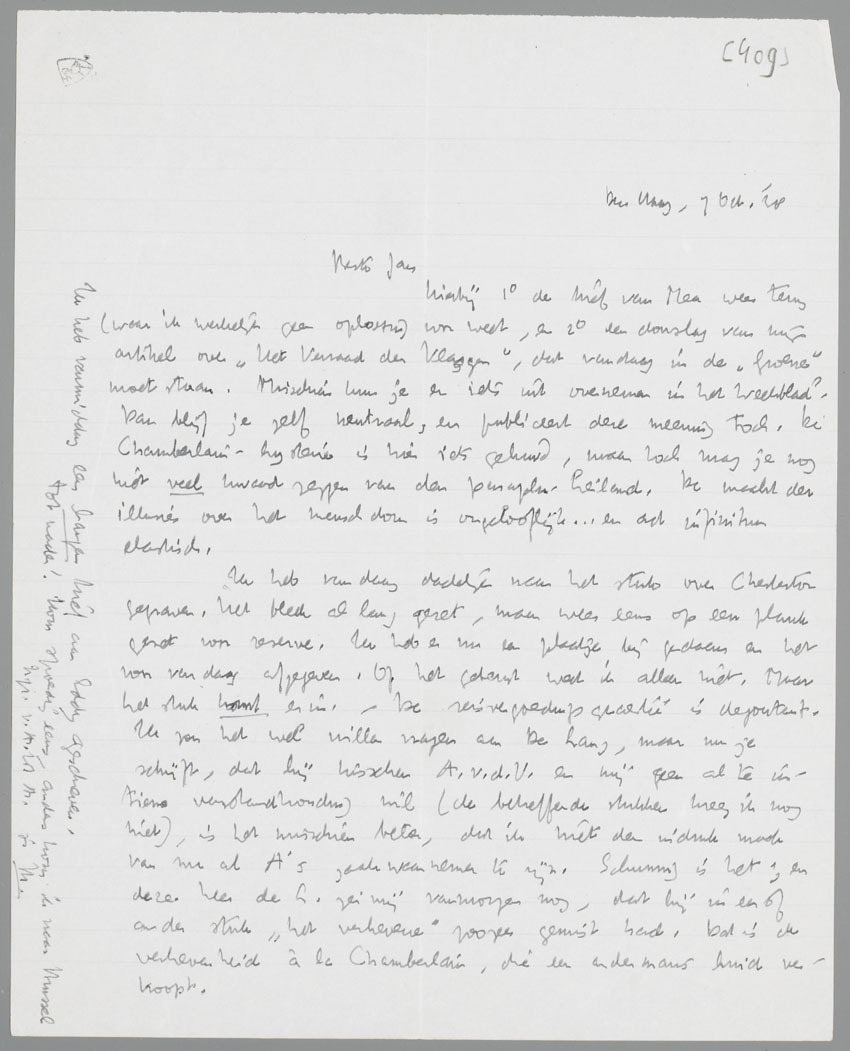 [409]
Den Haag, 7 Oct. '38
Beste Jan
hierbij 1° de brief van Mea weer terug
(waar ik werkelijk geen oplossing voor weet, en 2° een doorslag van mijn
artikel over „Het Verraad der Vlaggen", dat vandaag in de „Groene"
moet staan. Misschien kun je er iets uit overnemen in het weekblad?
Dan blijf je zelf neutraal, en publiceert deze meening toch. De
Chamberlain-hysterie is hier iets geluwd, maar toch mag je nog
niet veel kwaad zeggen van den paraplu-heiland. De macht der
illusies over het menschdom is ongelooflijk... en ad infinitum
elastisch.
Ik heb vandaag dadelijk naar het stuk over Chesterton
gevraagd. Het bleek al lang gezet, maar weer eens op een plank
gezet voor reserve. Ik heb er nu een plaatje bij gedaan en het
voor vandaag afgegeven. Of het gebeurt weet ik alleen niet. Maar
het stuk komt erin. – De reisvergoedings is degoutant.
Ik zou het wel willen vragen aan De Lang, maar nu je
schrijft, dat hij tusschen A.v.d.V. en mij geen al te in-
tieme verstandhouding wil (de betreffende stukken kreeg ik nog
niet), is het misschien beter, dat ik niet den indruk maak
van nu al A's zaakwaarnemer te zijn. Schunnig is het, en
deze heer de L. zei mij vanmorgen nog, dat hij in een of
ander stuk „het verhevene" zoozeer gemist had. Dat is de
verhevenheid à la Chamberlain, die een andermans huid ver-
koopt.
Ik heb vanmiddag een langen brief aan Eddy geschreven.
Tot nader! Kom spoedig eens, anders kom ik naar Brussel